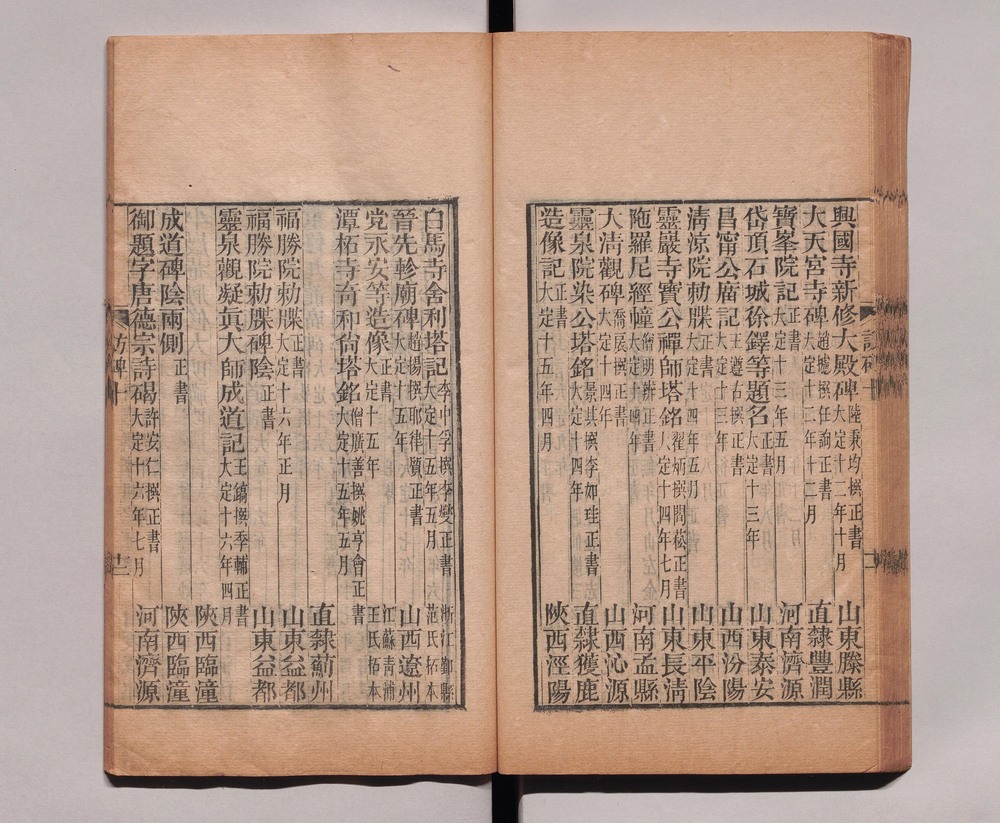 興國寺新修大殿碑 陸秉均撰正書 大定十二年十月 山東滕縣
大天宮寺碑 趙攄撰任詢正書 大定十二年十二月 直隸豐潤
寶峯院記 正書 大定十三年五月 河南濟源
岱頂石城徐鐸等題名 正書 大定十三年 山東泰安
昌甯公廟記 王遵古撰正書 大定十三年 山西汾陽
清涼院勅牒 正書 大定十四年五月 山東平陰
靈巖寺寶公禪師塔銘 翟炳撰閻崧正書 大定十四年七月 山東長清
陁羅尼經幢 僧明辨正書 大定十四年 河南孟縣
大清觀碑 喬扆撰正書 大定十四年 山西沁源
靈泉院染公塔銘 景其撰李如珪正書 大定十四年 直隸獲鹿
造像記 正書 大定十五年四月 陝西涇陽
白馬寺舍利塔記 李中孚撰李燮正書 大定十五年五月 浙江鄞縣范氏拓本
晉先軫廟碑 趙揚撰耶律質正書 大定十五年 山西遼州
党永安等造像 大定十五年 江蘇青浦王氏拓本
潭柘寺奇和尙塔銘 僧廣善撰姚亨會正書 大定十五年五月 直隸薊州
福勝院勅牒 正書 大定十六年正月 山東益都
福勝院勅牒碑陰 正書 山東益都
靈泉觀凝真大師成道記 王鎬撰季輔正書 大定十六年四月 陝西臨潼
成道碑陰兩側 正書 陝西臨潼
御題字唐德宗詩碣 許安仁撰正書 大定十六年七月 河南濟源